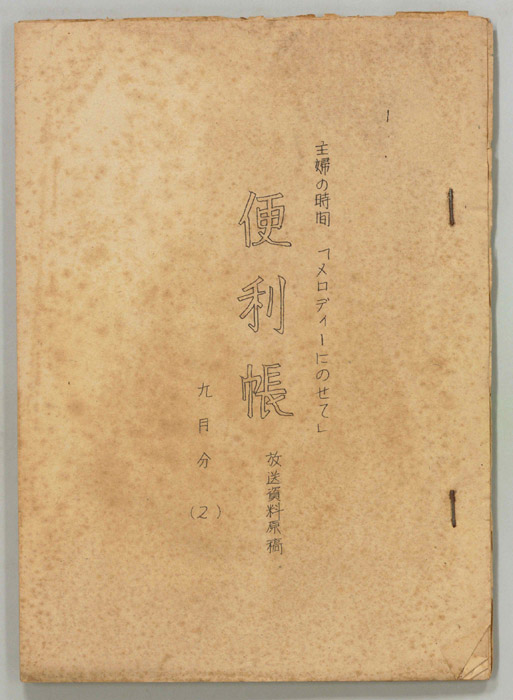 主婦の時間「メロディーにのせて」
便利帳
放送資料原稿
九月分
(2)